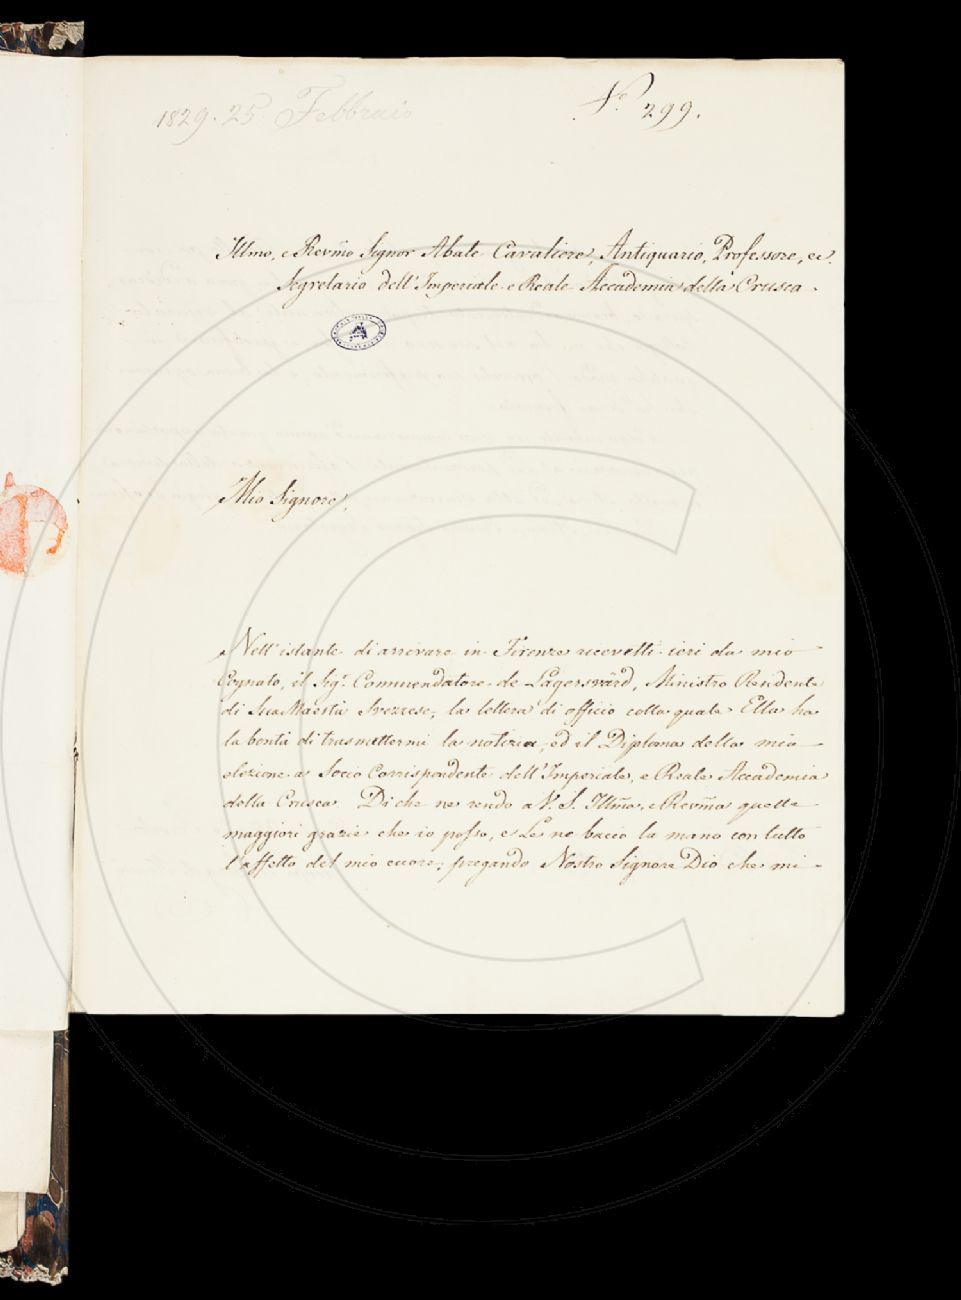 1829. 25 Febbraio
N.º 299.
Illmo, e Revm̃o Signor Abate Cavaliere, Antiquario, Professore, ec.
Segretario dell'Imperiale e Reale Accademia della Crusca.
Mio Signore,
Nell'istante di arrivare in Firenze ricevetti ieri da mio
Cognato, il Sigr. Commendatore de Lagerswärd, Ministro Residente
di Sua Maestà Svezzese, la lettera di officio colla quale Ella ha
la bontà di trasmettermi la notizia, ed il Diploma della mia
elezione a Socio Corrispondente dell'Imperiale, e Reale Accademia
della Crusca. Di che ne rendo a V. S. Illm̃a, e Revm̃a quelle
maggiori grazie che io posso, e Le ne bacio la mano con tutto
l'affetto del mio cuore; pregando Nostro Signore Dio che mi